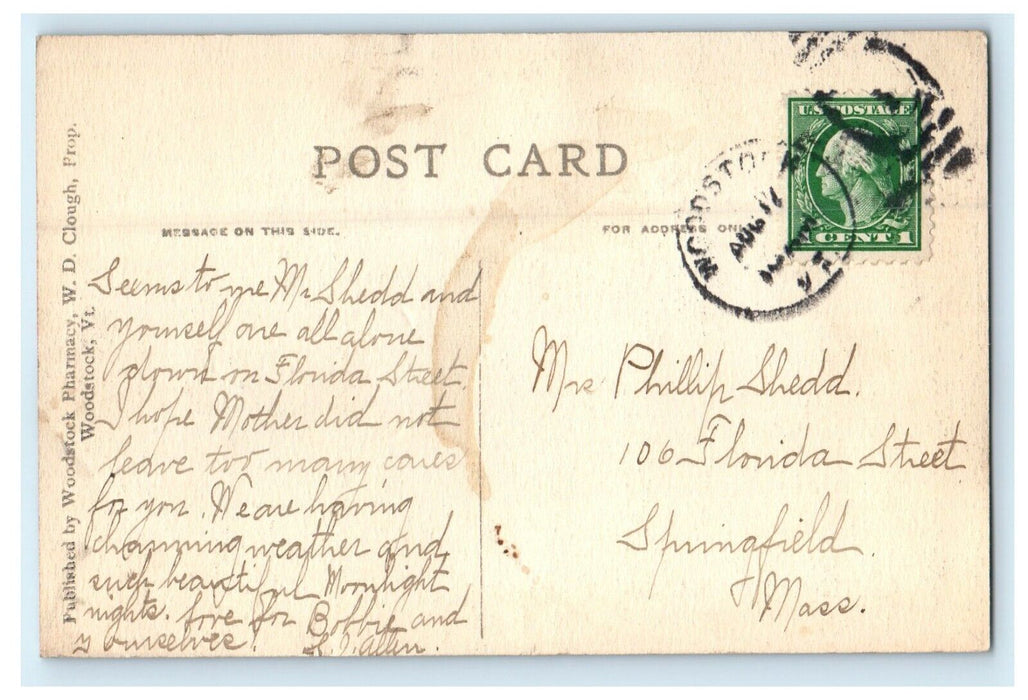 POST CARD
MESSAGE ON THIS SIDE.
FOR ADDRESS ONLY
U.S. POSTAGE
1 CENT 1
WOODSTOCK
AUG 17
VT.
Published by Woodstock Pharmacy, W. D. Clough, Prop.
Woodstock, Vt.
Seems to me Mr Shedd and
yourself are all alone
down on Florida Street.
I hope Mother did not
leave too many cares
for you. We are having
charming weather and
such beautiful Moonlight
nights. love for Bobbie and
yourselves. Allen.
Mrs Phillip Shedd.
106 Florida Street
Springfield.
Mass.